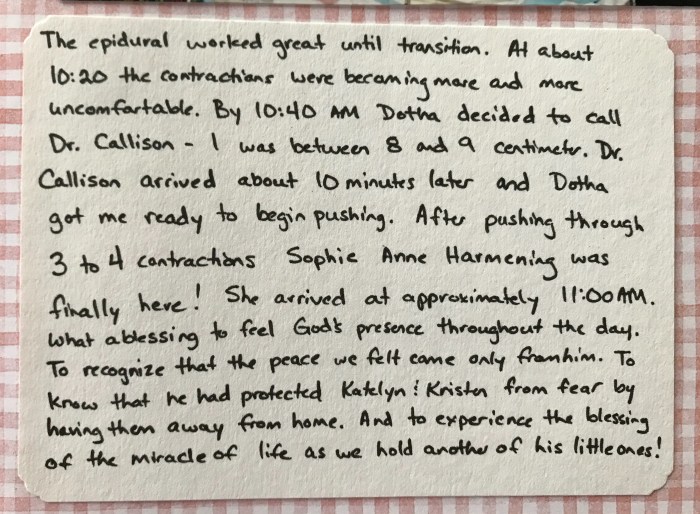 The epidural worked great until transition. At about
10:20 the contractions were becoming more and more
uncomfortable. By 10:40 AM Dotha decided to call
Dr. Callison - I was between 8 and 9 centimeter. Dr.
Callison arrived about 10 minutes later and Dotha
got me ready to begin pushing. After pushing through
3 to 4 contractions Sophie Anne Harmening was
finally here! She arrived at approximately 11:00 AM.
What a blessing to feel God's presence throughout the day.
To recognize that the peace we felt came only from him. To
know that he had protected Katelyn & Kristen from fear by
having them away from home. And to experience the blessing
of the miracle of life as we hold another of his little ones!